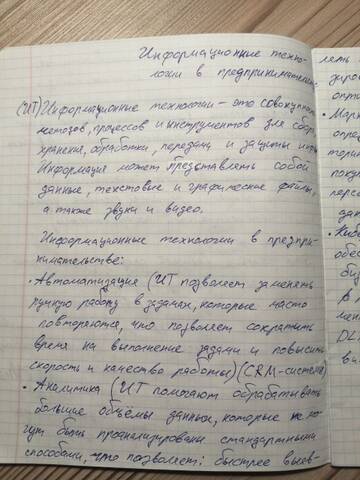 Информационные техно-
логии в предприниматель
(ИТ) Информационные технологии - это совокупност
методов, процессов и инструментов для сбора
хранения, обработки, передачи и защиты
Информация может представлять собой
данные, текстовые и графические файлы,
а также звуки и видео.
Информационные технологии в предпри-
нимательстве:
• Автоматизация (ИТ позволяет заменять
ручную работу в задачах, которые часто
повторяются, что позволяет сократить
время на выполнение задачи и повысить
скорость и качество работы) (CRM-система)
• Аналитика (ИТ помогают обрабатывать
большие объёмы данных, которые не мо-
гут быть проанализированы стандартными
способами, что позволяет: быстрее выяв-
леть
опти
Марк
опред
покуп
персо
дан
обес
биз
в
DL